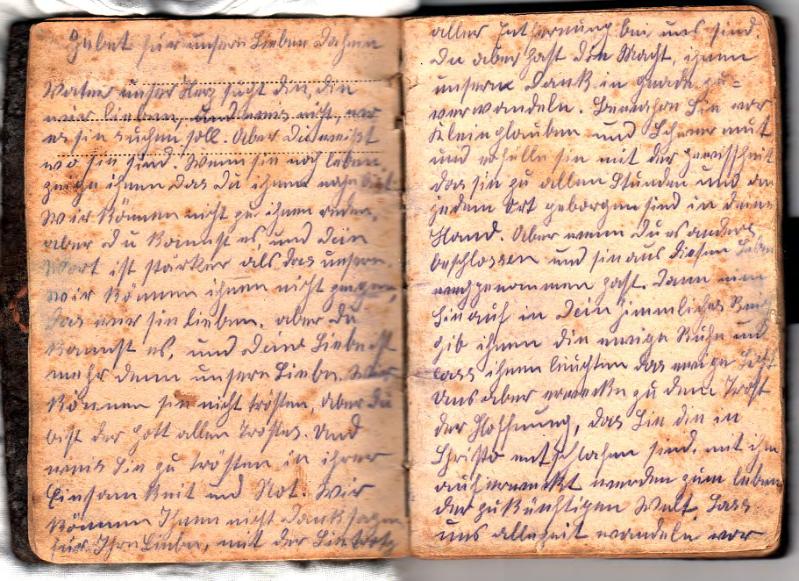 Gebet für unsere Lieben daheim
Vater unser Herz sucht die, die
wir lieben, und weis nicht, wo
es sie suchen soll. Aber du weißt
wo sie sind. Wenn sie noch leben
zeige ihnen das du ihnen nahe bist.
Wir können nicht zu ihnen reden,
aber du kannst es, und dein
Wort ist stärker als das unsere.
Wir können ihnen nicht zeigen,
das wir sie lieben, aber du
kannst es, und deine Liebe ist
mehr denn unsere Liebe. Wir
können sie nicht trösten, aber du
bist der Gott allen Trostes. Und
weist Sie zu trösten in ihrer
Einsamkeit und Not. Wir
können Ihnen nicht danksagen
für Ihre Liebe, mit der Sie trotz
aller Entfernung bei uns sind.
Du aber hast die Macht, ihnen
unsern Dank in Gnade zu=
verwandeln. Bewahre Sie vor
Kleinglauben und Schwermut
und erfülle sie mit der gewissheit
das sie zu allen Stunden und an
jedem Ort geborgen sind in deine
Hand. Aber wenn du es anders
beschlossen und sie aus diesem Leben
weggenommen hast. Dann nim
Sie auf in dein himmlisches Reich
gib ihnen die ewige Ruhe und
lass ihnen leuchten das ewige Licht
Uns aber erwecke zu dem Trost
der Hoffnung, das Sie die in
Christo entschlafen sind, mit ihm
auferweckt werden zum leben
der zukünftigen Welt. Lass
uns allezeit wandeln vor